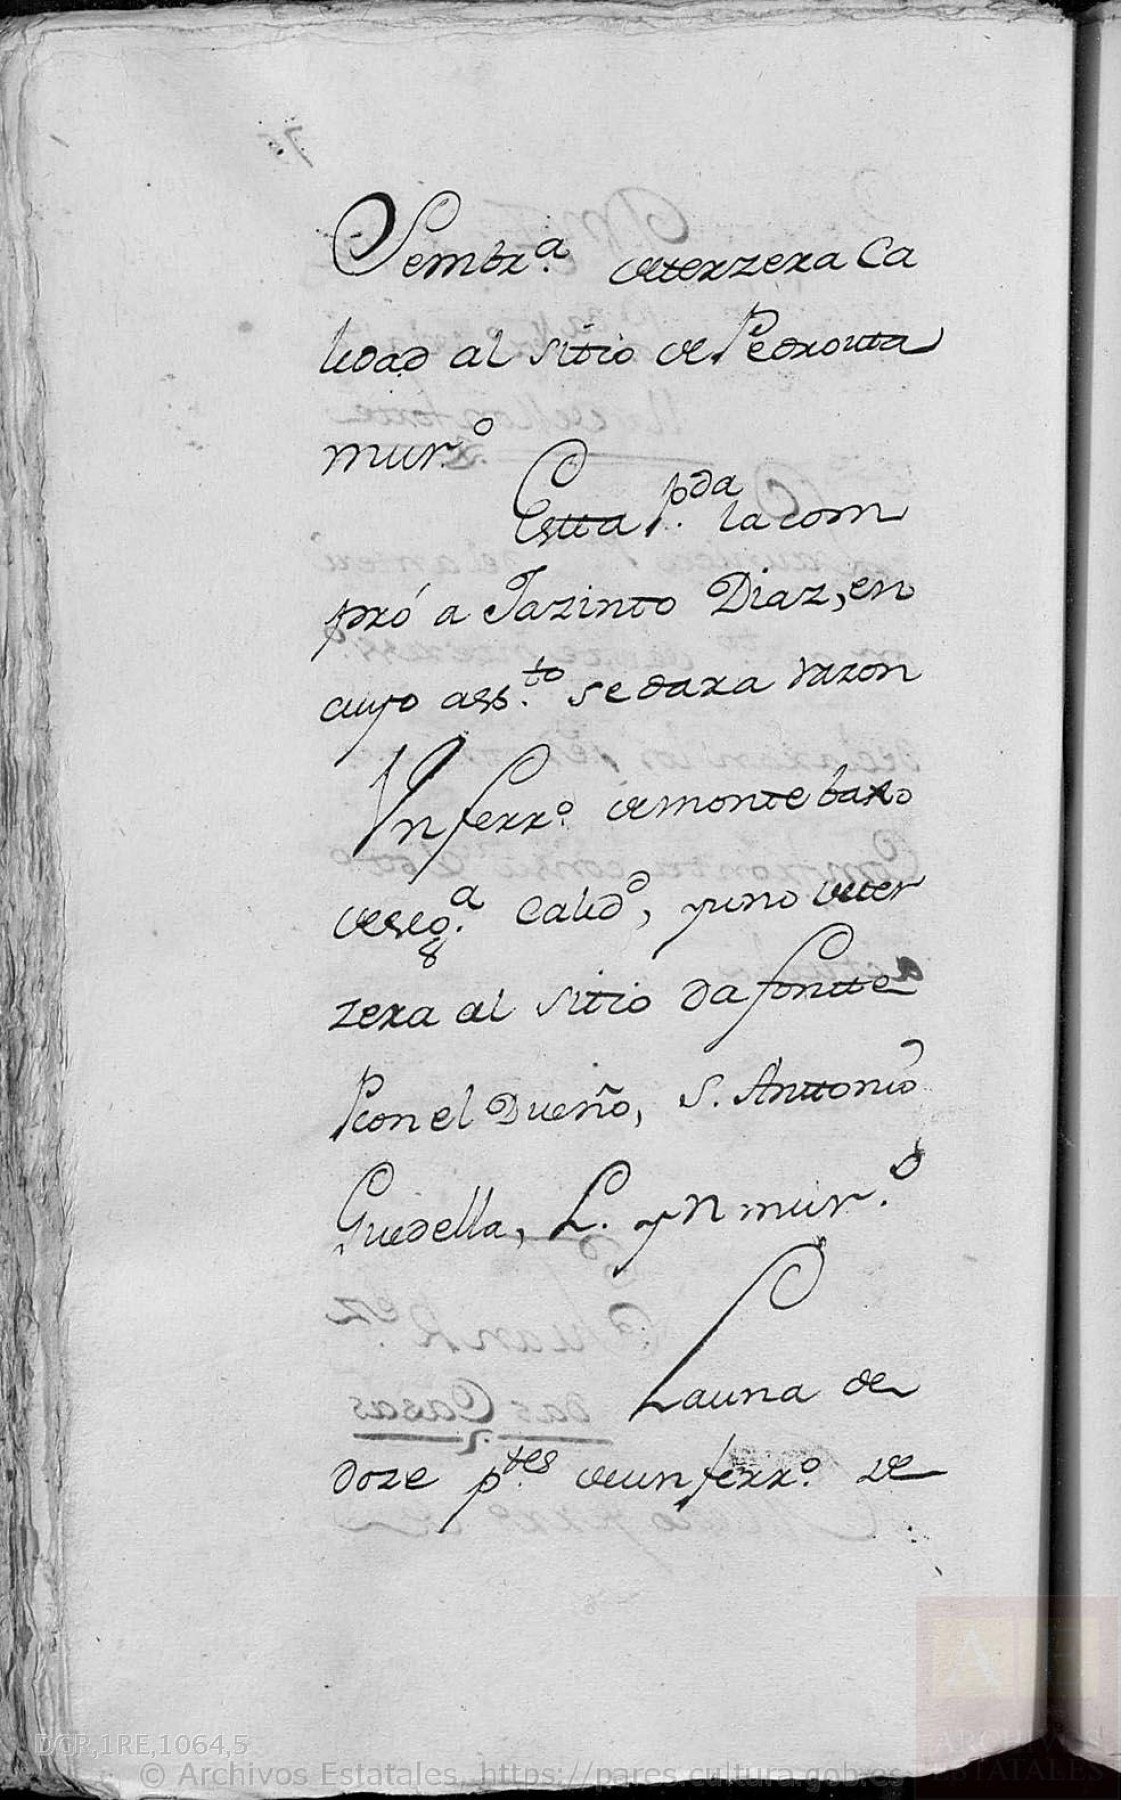 Sembr.ª de terzera Ca
lidad al sitio de Pedrouta
mur.º
Estta p.da la com
pró a Jazinto Diaz, en
cuyo ass.to se dara razon
Vn ferr.º de monte baxo
de seg.ª Calid.d, y uno de ter
zera al sitio da fontte
P. con el Dueño, S. Anttonio
Guedella, L. y N mur.º
La una de
doze p.tes de un ferr.º de
DGR,1RE,1064,5
© Archivos Estatales, https://pares.cultura.gob.es
ARCHIVOS
ESTATALES